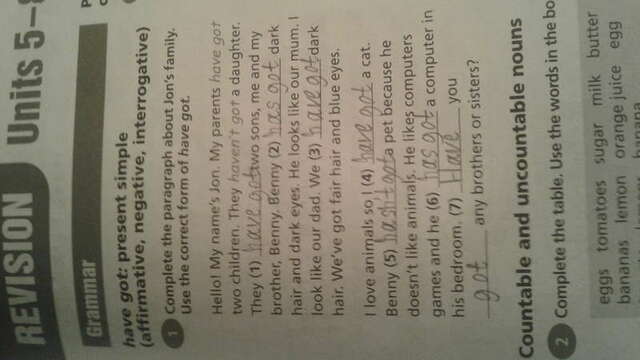 REVISION Units 5–
Grammar
have got: present simple
(affirmative, negative, interrogative)
1 Complete the paragraph about Jon's family.
Use the correct form of have got.
Hello! My name's Jon. My parents have got
two children. They haven't got a daughter.
They (1) have got two sons, me and my
brother, Benny. Benny (2) has got dark
hair and dark eyes. He looks like our mum. I
look like our dad. We (3) have got dark
hair. We've got fair hair and blue eyes.
I love animals so I (4) have got a cat.
Benny (5) hasn't got a pet because he
doesn't like animals. He likes computers
games and he (6) has got a computer in
his bedroom. (7) Have you
got any brothers or sisters?
Countable and uncountable nouns
2 Complete the table. Use the words in the bo
eggs tomatoes sugar milk butter
bananas lemon orange juice egg